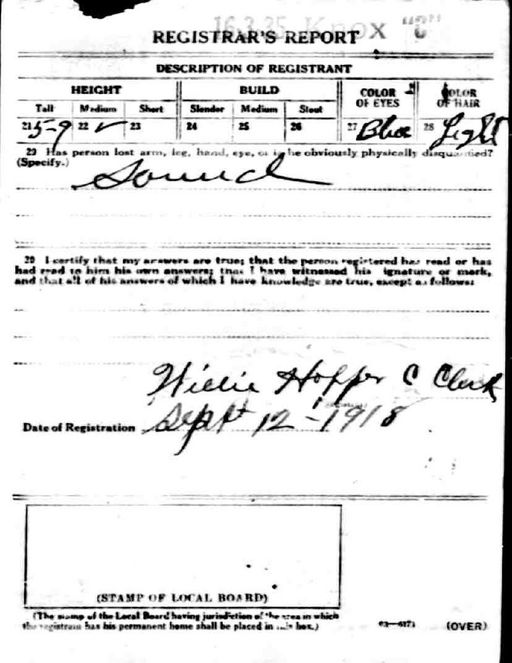 16.3.35. Knox "C"
REGISTRAR'S REPORT
DESCRIPTION OF REGISTRANT
HEIGHT BUILD COLOR OF EYES COLOR OF HAIR
Tall Medium Short Slender Medium Stout
21 5-9 22 ✓ 23 24 25 26 27 Blue 28 Light
29 Has person lost arm, leg, hand, eye, or is he obviously physically disqualified?
(Specify.)
Sound
30 I certify that my answers are true; that the person registered has read or has
had read to him his own answers; that I have witnessed his signature or mark,
and that all of his answers of which I have knowledge are true, except as follows:
Willie Hopper C Clerk
Date of Registration Sept 12-1918
(STAMP OF LOCAL BOARD)
(The stamp of the Local Board having jurisdiction of the area in which
the registrant has his permanent home shall be placed in this box.)
(OVER)